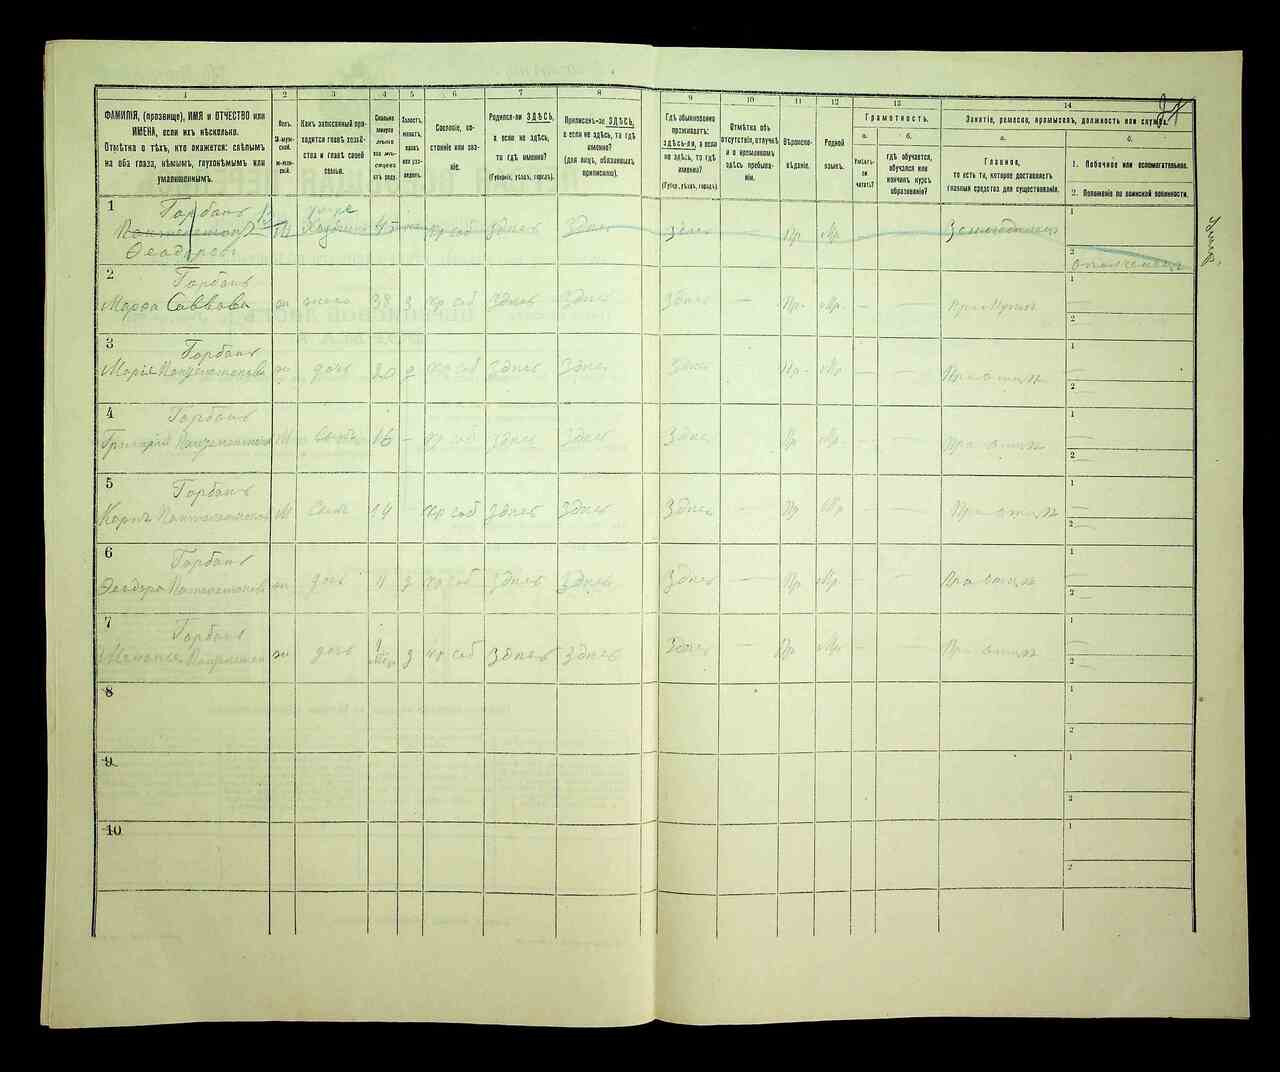 1
ФАМИЛІЯ, (прозвище), ИМЯ и ОТЧЕСТВО или
ИМЕНА, если ихъ нѣсколько.
Отмѣтка о тѣхъ, кто окажется: слѣпымъ
на оба глаза, нѣмымъ, глухонѣмымъ или
умалишеннымъ.
2
Полъ.
М-муж-
ской.
ж-жен-
ской.
3
Какъ записанный при-
ходится главѣ хозяй-
ства и главѣ своей
семьи.
4
Сколько
минуло
лѣтъ
или мѣ-
сяцевъ
отъ роду.
5
Холостъ,
женатъ,
вдовъ
или раз-
веденъ.
6
Сословіе, со-
стояніе или зва-
ніе.
7
Родился-ли ЗДѢСЬ,
а если не здѣсь,
то гдѣ именно?
(Губернія, уѣздъ, городъ).
8
Приписанъ-ли ЗДѢСЬ,
а если не здѣсь, то гдѣ
именно?
(для лицъ, обязанныхъ
припискою).
9
Гдѣ обыкновенно
проживаетъ:
здѣсь-ли, а если
не здѣсь, то гдѣ
именно?
(Губер., уѣздъ, городъ).
10
Отмѣтка объ
отсутствіи, отлучкѣ
и о временномъ
здѣсь пребыва-
ніи.
11
Вѣроиспо-
вѣданіе.
12
Родной
языкъ.
13
Грамотность.
а.
Умѣетъ-
ли
читать?
б.
гдѣ обучается,
обучался или
кончилъ курсъ
образованія?
14
Занятіе, ремесло, промыселъ, должность или служба.
а.
Главное,
то есть то, которое доставляетъ
главныя средства для существованія.
б.
1. Побочное или вспомогательное.
2. Положеніе по воинской повинности.
1
Горбань
Пантелеймонъ
Феодоровъ
М
45
кр соб
Здѣсь
Здѣсь
Здѣсь
Пр
Мр
Земледѣлецъ
1
2
ополченецъ
Умеръ
2
Горбань
Марфа Саввова
ж
жена 38 з кр соб Здѣсь Здѣсь Здѣсь — Пр. Мр. — — При мужѣ
1
2
3
Горбань
Марія
ж дочь 20 д кр соб Здѣсь Здѣсь Здѣсь — Пр. Мр. — — При отцѣ
1
2
4
Горбань
Григорій
М Сынъ 16 — кр соб Здѣсь Здѣсь Здѣсь — Пр Мр. — — При отцѣ
1
2
5
Горбань
М Сынъ 14 кр соб Здѣсь Здѣсь Здѣсь — Пр Мр. — При отцѣ
1
2
6
Горбань
Феодора
ж дочь 11 д кр соб Здѣсь Здѣсь Здѣсь — Пр. Мр. — — При отцѣ
1
2
7
Горбань
ж дочь д кр соб Здѣсь Здѣсь Здѣсь — Пр Мр. — — При отцѣ
1
2
8
1
2
9
1
2
10
1
2